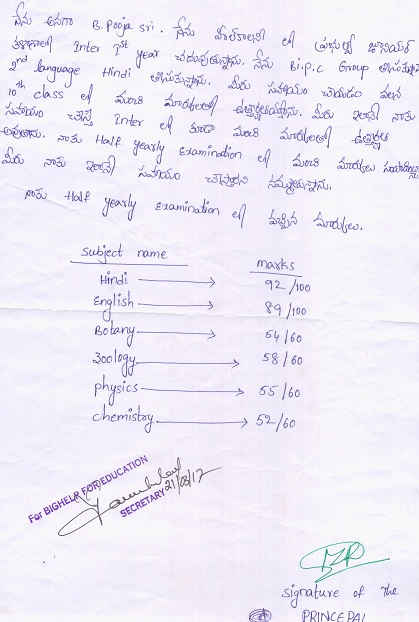 నేను అనగా B. Pooja sri. నేను
కళాశాలలో Inter 1st year చదువుతున్నాను. నేను Bi.P.C Group తీసుకున్నాను
2nd language Hindi తీసుకున్నాను. మీరు సహాయం చేయడం వలన
10th class లో మంచి మార్కులతో ఉత్తీర్ణురాలయ్యాను. మీరు ఇలానే నాకు
సహాయం చేస్తే Inter లో కూడా మంచి మార్కులతో ఉత్తీర్ణురాలు
అవుతాను. నాకు Half yearly Examination లో మంచి మార్కులు
మీరు నాకు ఇలానే సహాయం చేస్తారని నమ్ముతున్నాను.
నాకు Half yearly Examination లో వచ్చిన మార్కులు.
subject name marks
Hindi → 92/100
English → 89/100
Botany → 54/60
Zoology → 58/60
physics → 55/60
chemistry → 52/60
For BIGHELP FOR EDUCATION
SECRETARY 21/03/17
signature of the
PRINCEPAL